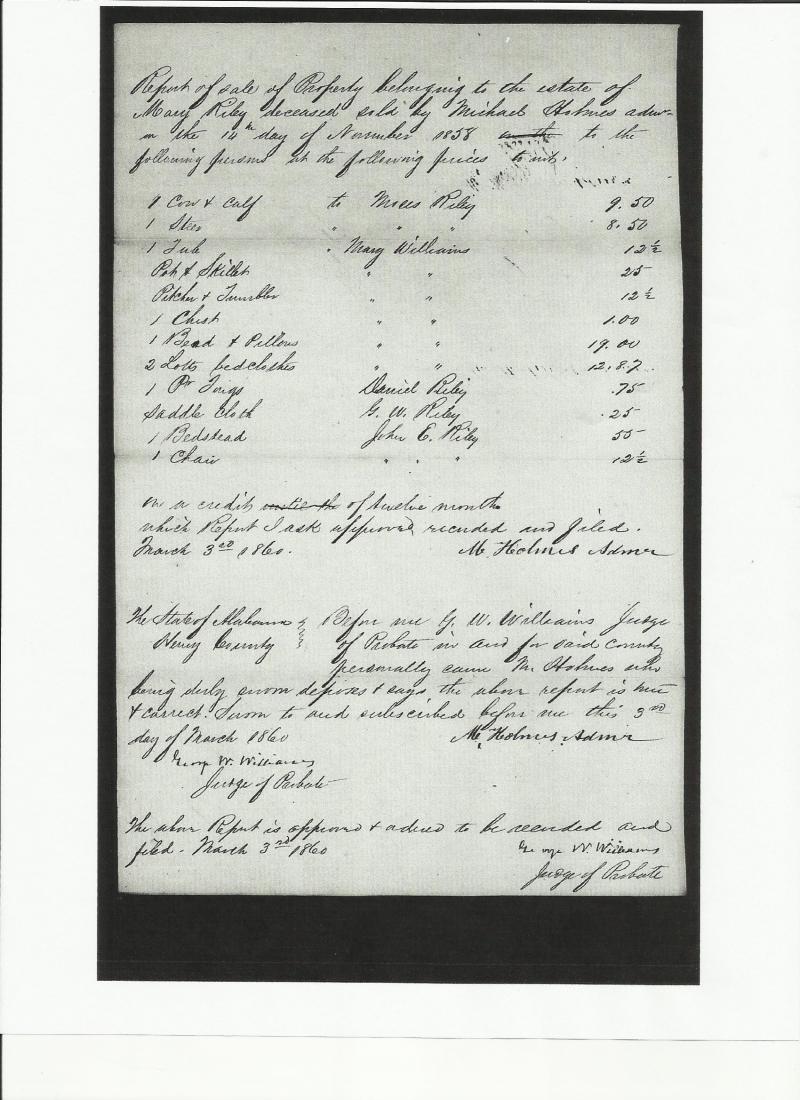 Report of sale of Property belonging to the estate of
Mary Riley deceased sold by Michael Holmes admr
on the 14th day of November 1858 on the to the
following persons at the following prices to wit.
1 Cow & Calf to Moses Riley 9.50
1 Steer " " " 8.50
1 Tub " Mary Williams 12½
Pot & Skillet " " 25
Pitcher & Tumbler " " 12½
1 Chest " " 1.00
1 Bead & Pillows " " 19.00
2 Lotts bedclothes " " 12.87
1 Pr Tongs Daniel Riley .75
Saddle Cloth G. W. Riley .25
1 Bedstead John E. Riley 55
1 Chair " " " 12½
on a credit until the of twelve months
which Report I ask approved recorded and filed.
March 3rd 1860. M. Holmes Admr
The State of Alabama } Before me G. W. Williams Judge
Henry County } of Probate in and for said county
personally came M. Holmes who
being duly sworn deposes & says the above report is true
& correct. Sworn to and subscribed before me this 3rd
day of March 1860 M. Holmes Admr
George W. Williams
Judge of Probate
The above Report is approved & ordered to be recorded and
filed. March 3rd 1860 George W. Williams
Judge of Probate